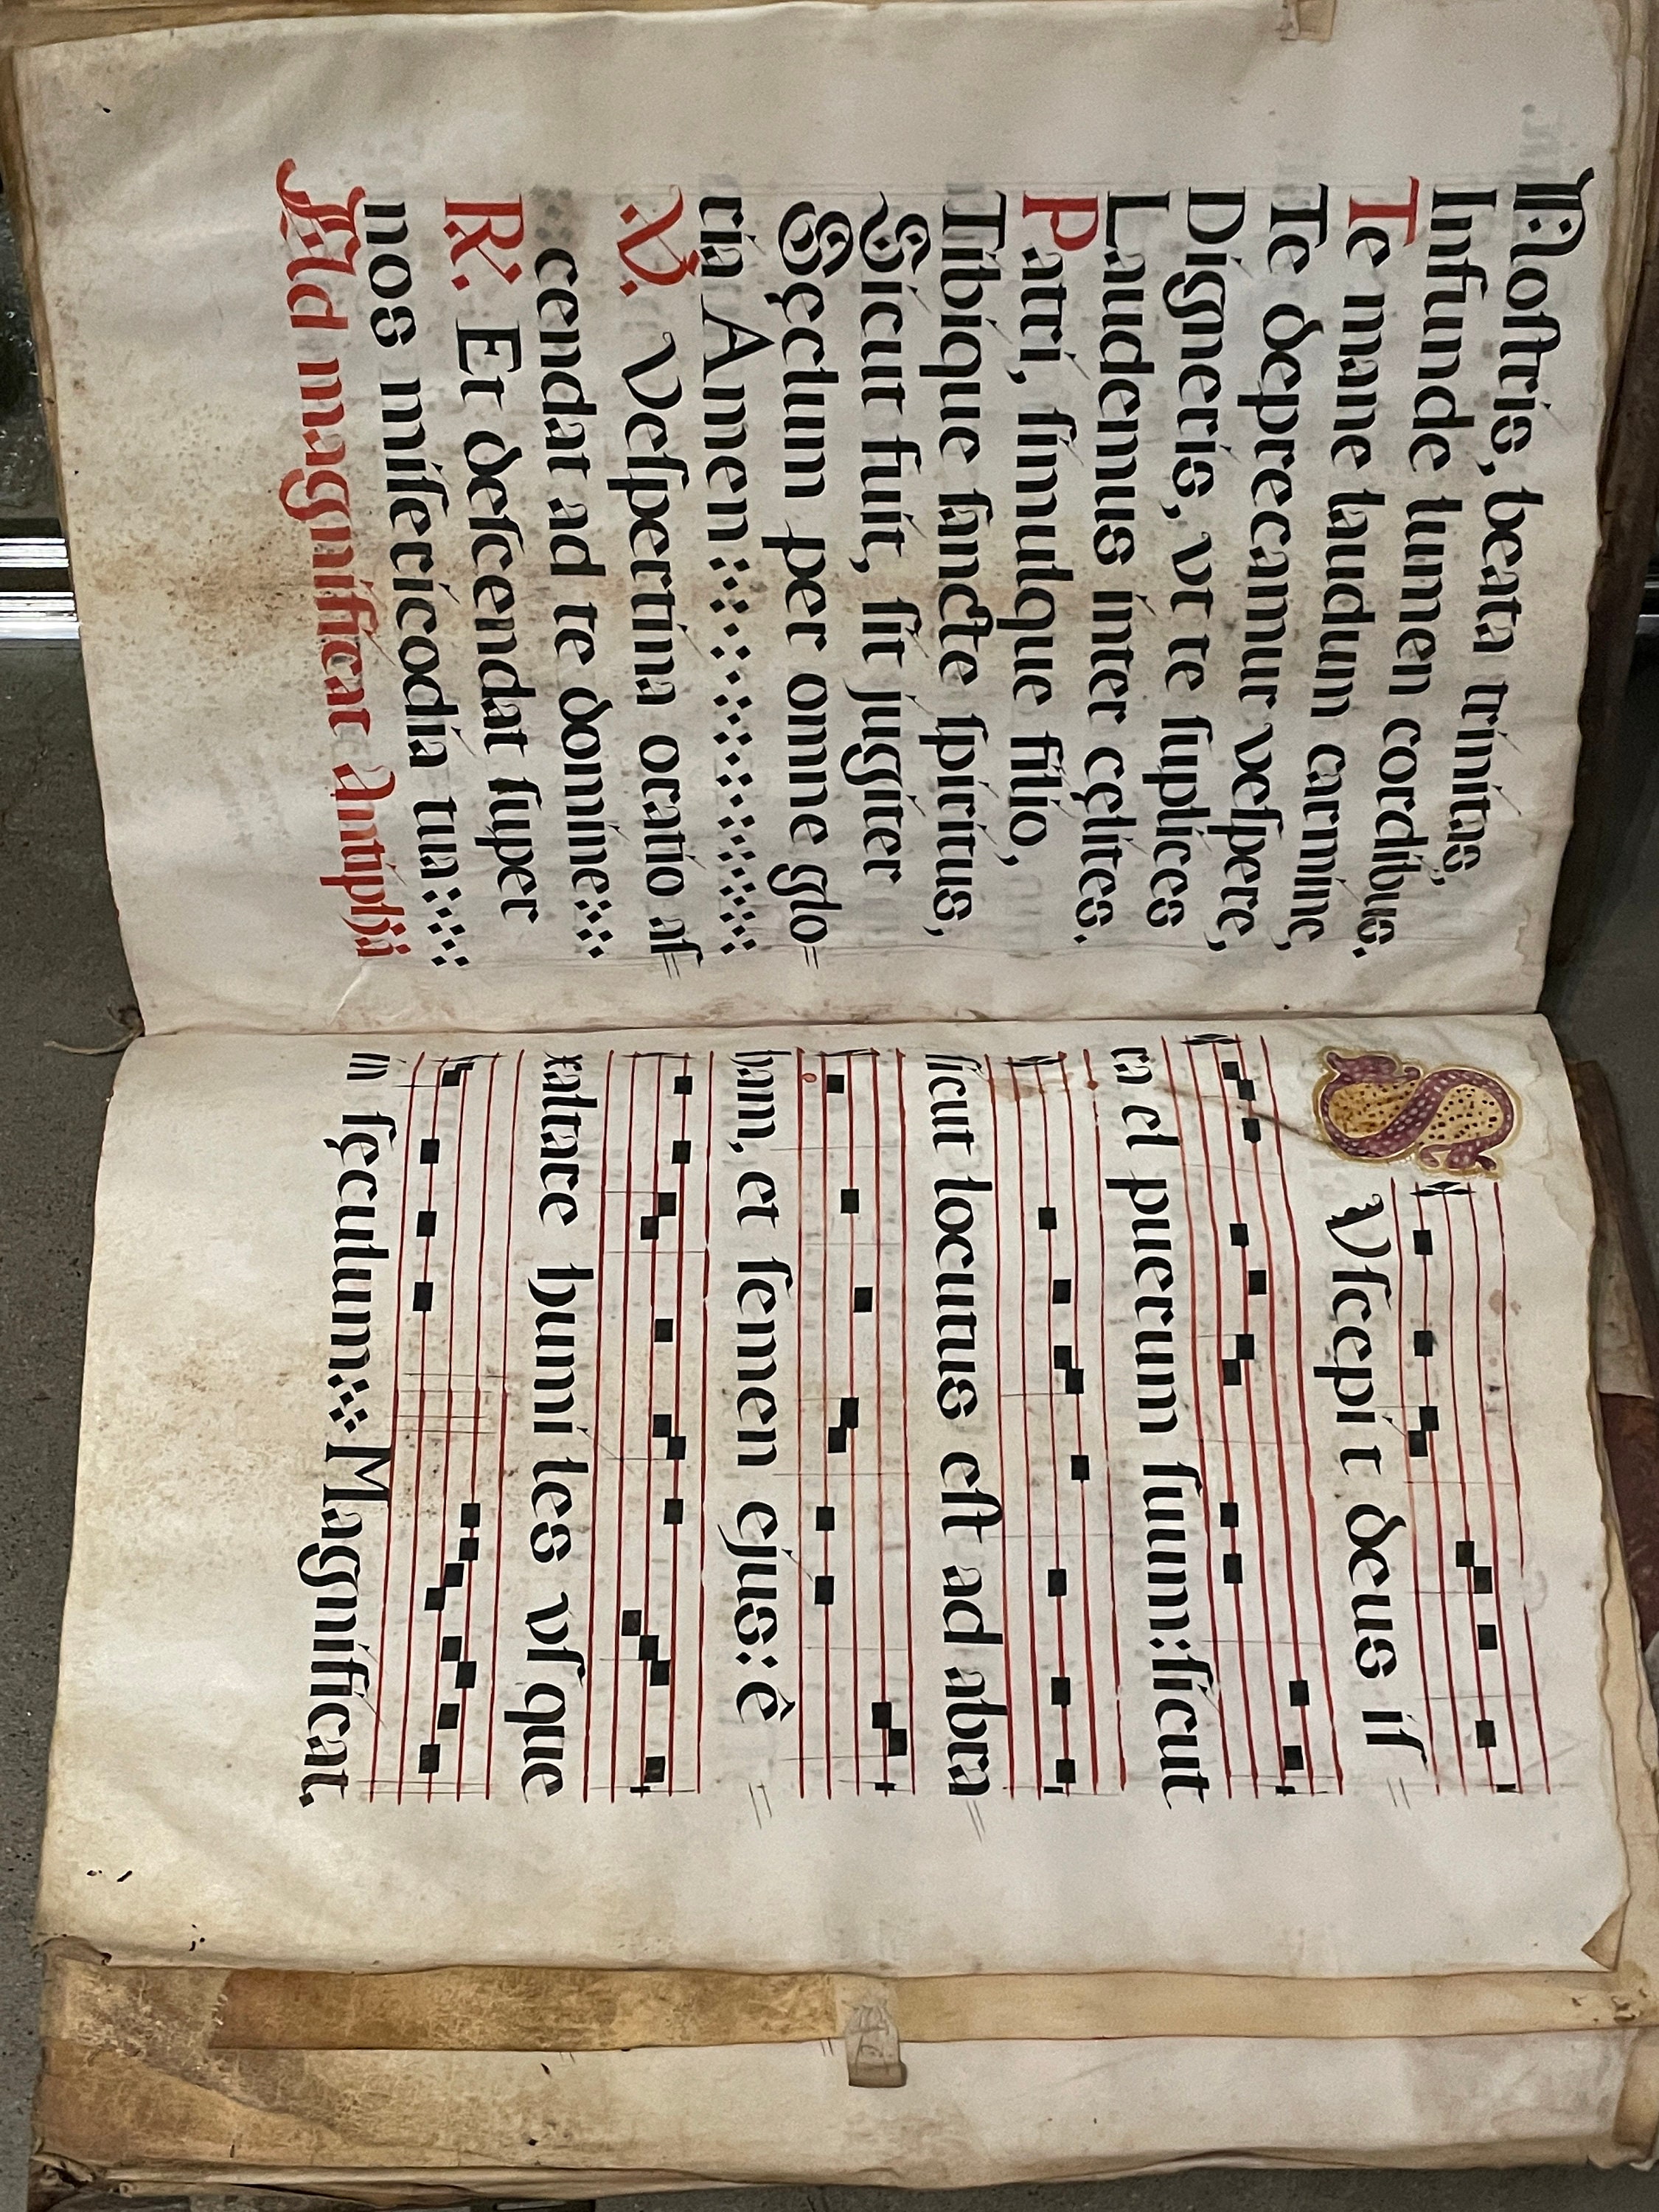 Nostris, beata trinitas,
Infunde lumen cordibus.
Te mane laudum carmine,
Te deprecamur vespere,
Digneris, vt te suplices
Laudemus inter cęlites.
Patri, simulque filio,
Tibique sancte spiritus,
Sicut fuit, sit jugiter
Sęclum per omne glo=
ria Amen
℣. Vespertina oratio as=
cendat ad te domine
℟. Et descendat super
nos misericodia tua
Ad magnificat Antiphã
SVscepit deus is=
ra el puerum suum: sicut
sicut locutus est ad abra=
ham, et semen ejus: ê=
xaltare humi les vsque
in sęculum Magnificat.